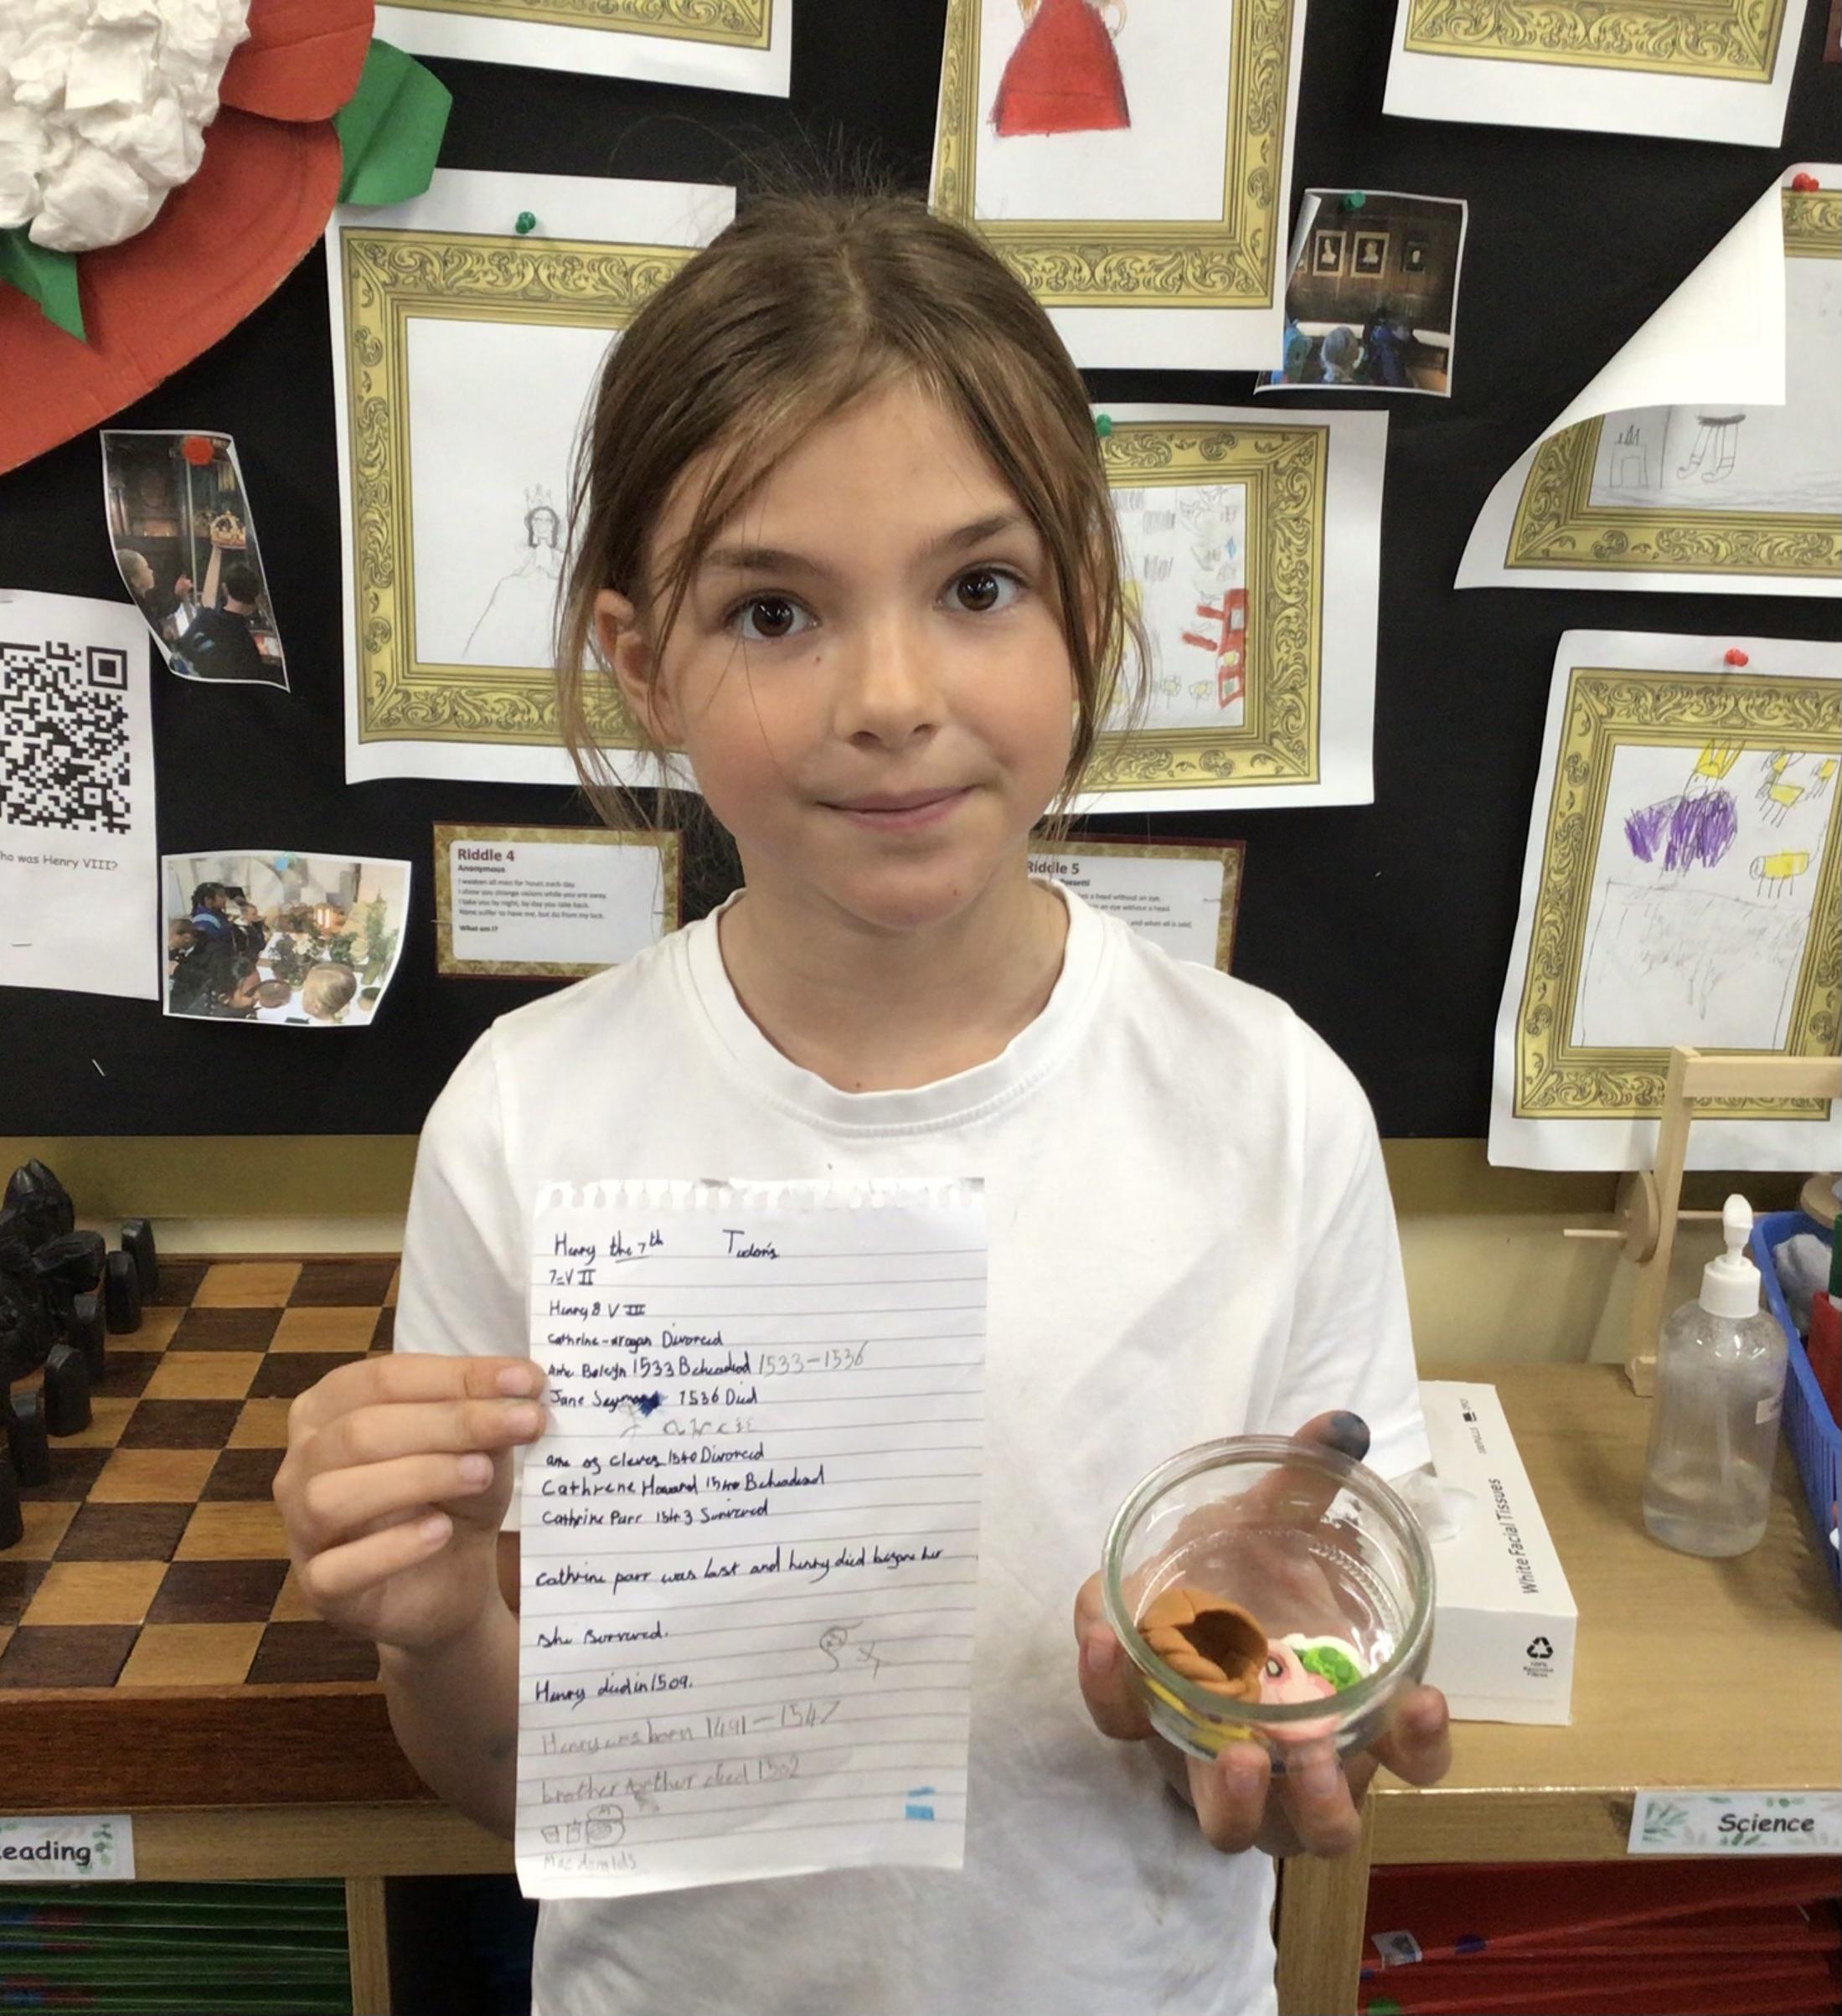 ho was Henry VIII?
Riddle 4
Anonymous
I weaken all men for hours each day.
I show you strange visions while you are away.
I take you by night, by day you take back.
None suffer to have me, but do from my lack.
What am I?
Riddle 5
Rossetti
a head without an eye.
is an eye without a head.
and when all is said,
Henry the 7th Tudor's
7=VII
Henry 8 VIII
Cathrine-aragon Divorced
Anne Boleyn 1533 Beheaded 1533-1536
Jane 1536 Died
ane of Cleves 1540 Divorced
Cathrene Howard 1540 Beheaded
Cathrine Parr 1543 Survived
Cathrine parr was last and henry died before her
She Survived.
Henry died in 1509.
Henry was born 1491-1547
brother Arthur died 1502
Macdonalds
White Facial Tissues
eading
Science